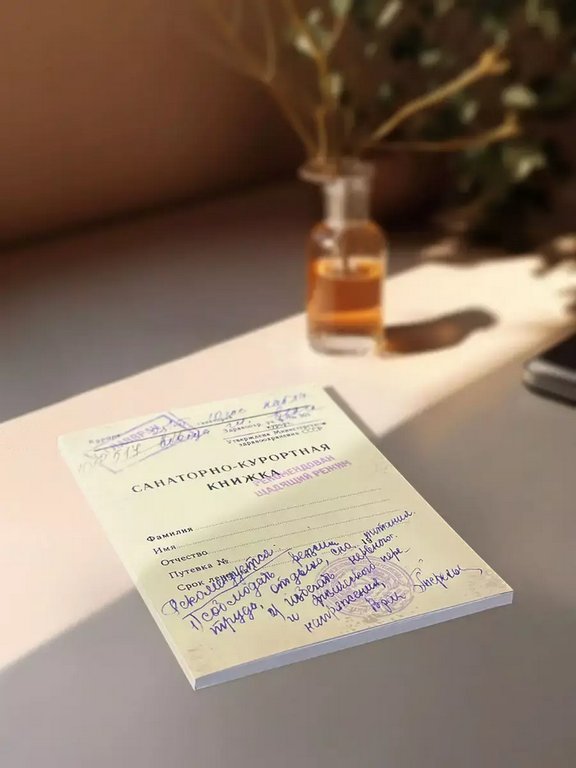 Курорт
Утверждена Министерством
здравоохранения СССР
САНАТОРНО-КУРОРТНАЯ
КНИЖКА
РЕКОМЕНДОВАН
ЩАДЯЩИЙ РЕЖИМ
Фамилия
Имя
Отчество
Путевка №
Срок
Рекомендуется:
1) соблюдать режим
труда, отдыха, сна, питания
2) избегать нервного
и физического пере-
напряжения.
Врач